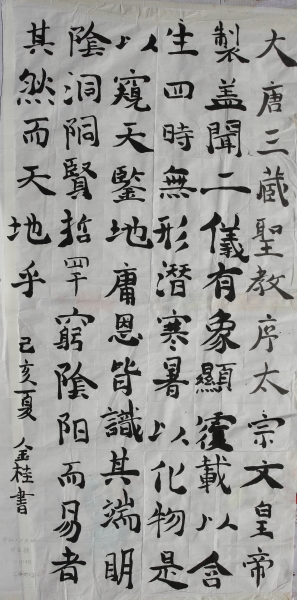 大唐三藏聖教序太宗文皇帝
製蓋聞二儀有象顯覆載以含
生四時無形潛寒暑以化物是
以窺天鑒地庸恩皆識其端明
陰洞賢哲罕窮陰陽而易者
其然而天地乎
己亥夏 金桂書